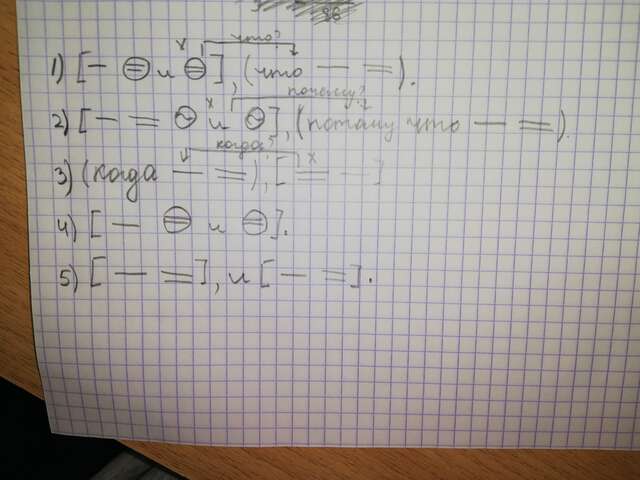 96
что?
1) [— ⊜ и ⊜], (что — =).
почему?
2) [— = ⊝ и ⊝], (потому что — =).
когда?
3) (когда — =), [= —]
4) [— ⊜ и ⊜].
5) [— =], и [— =].